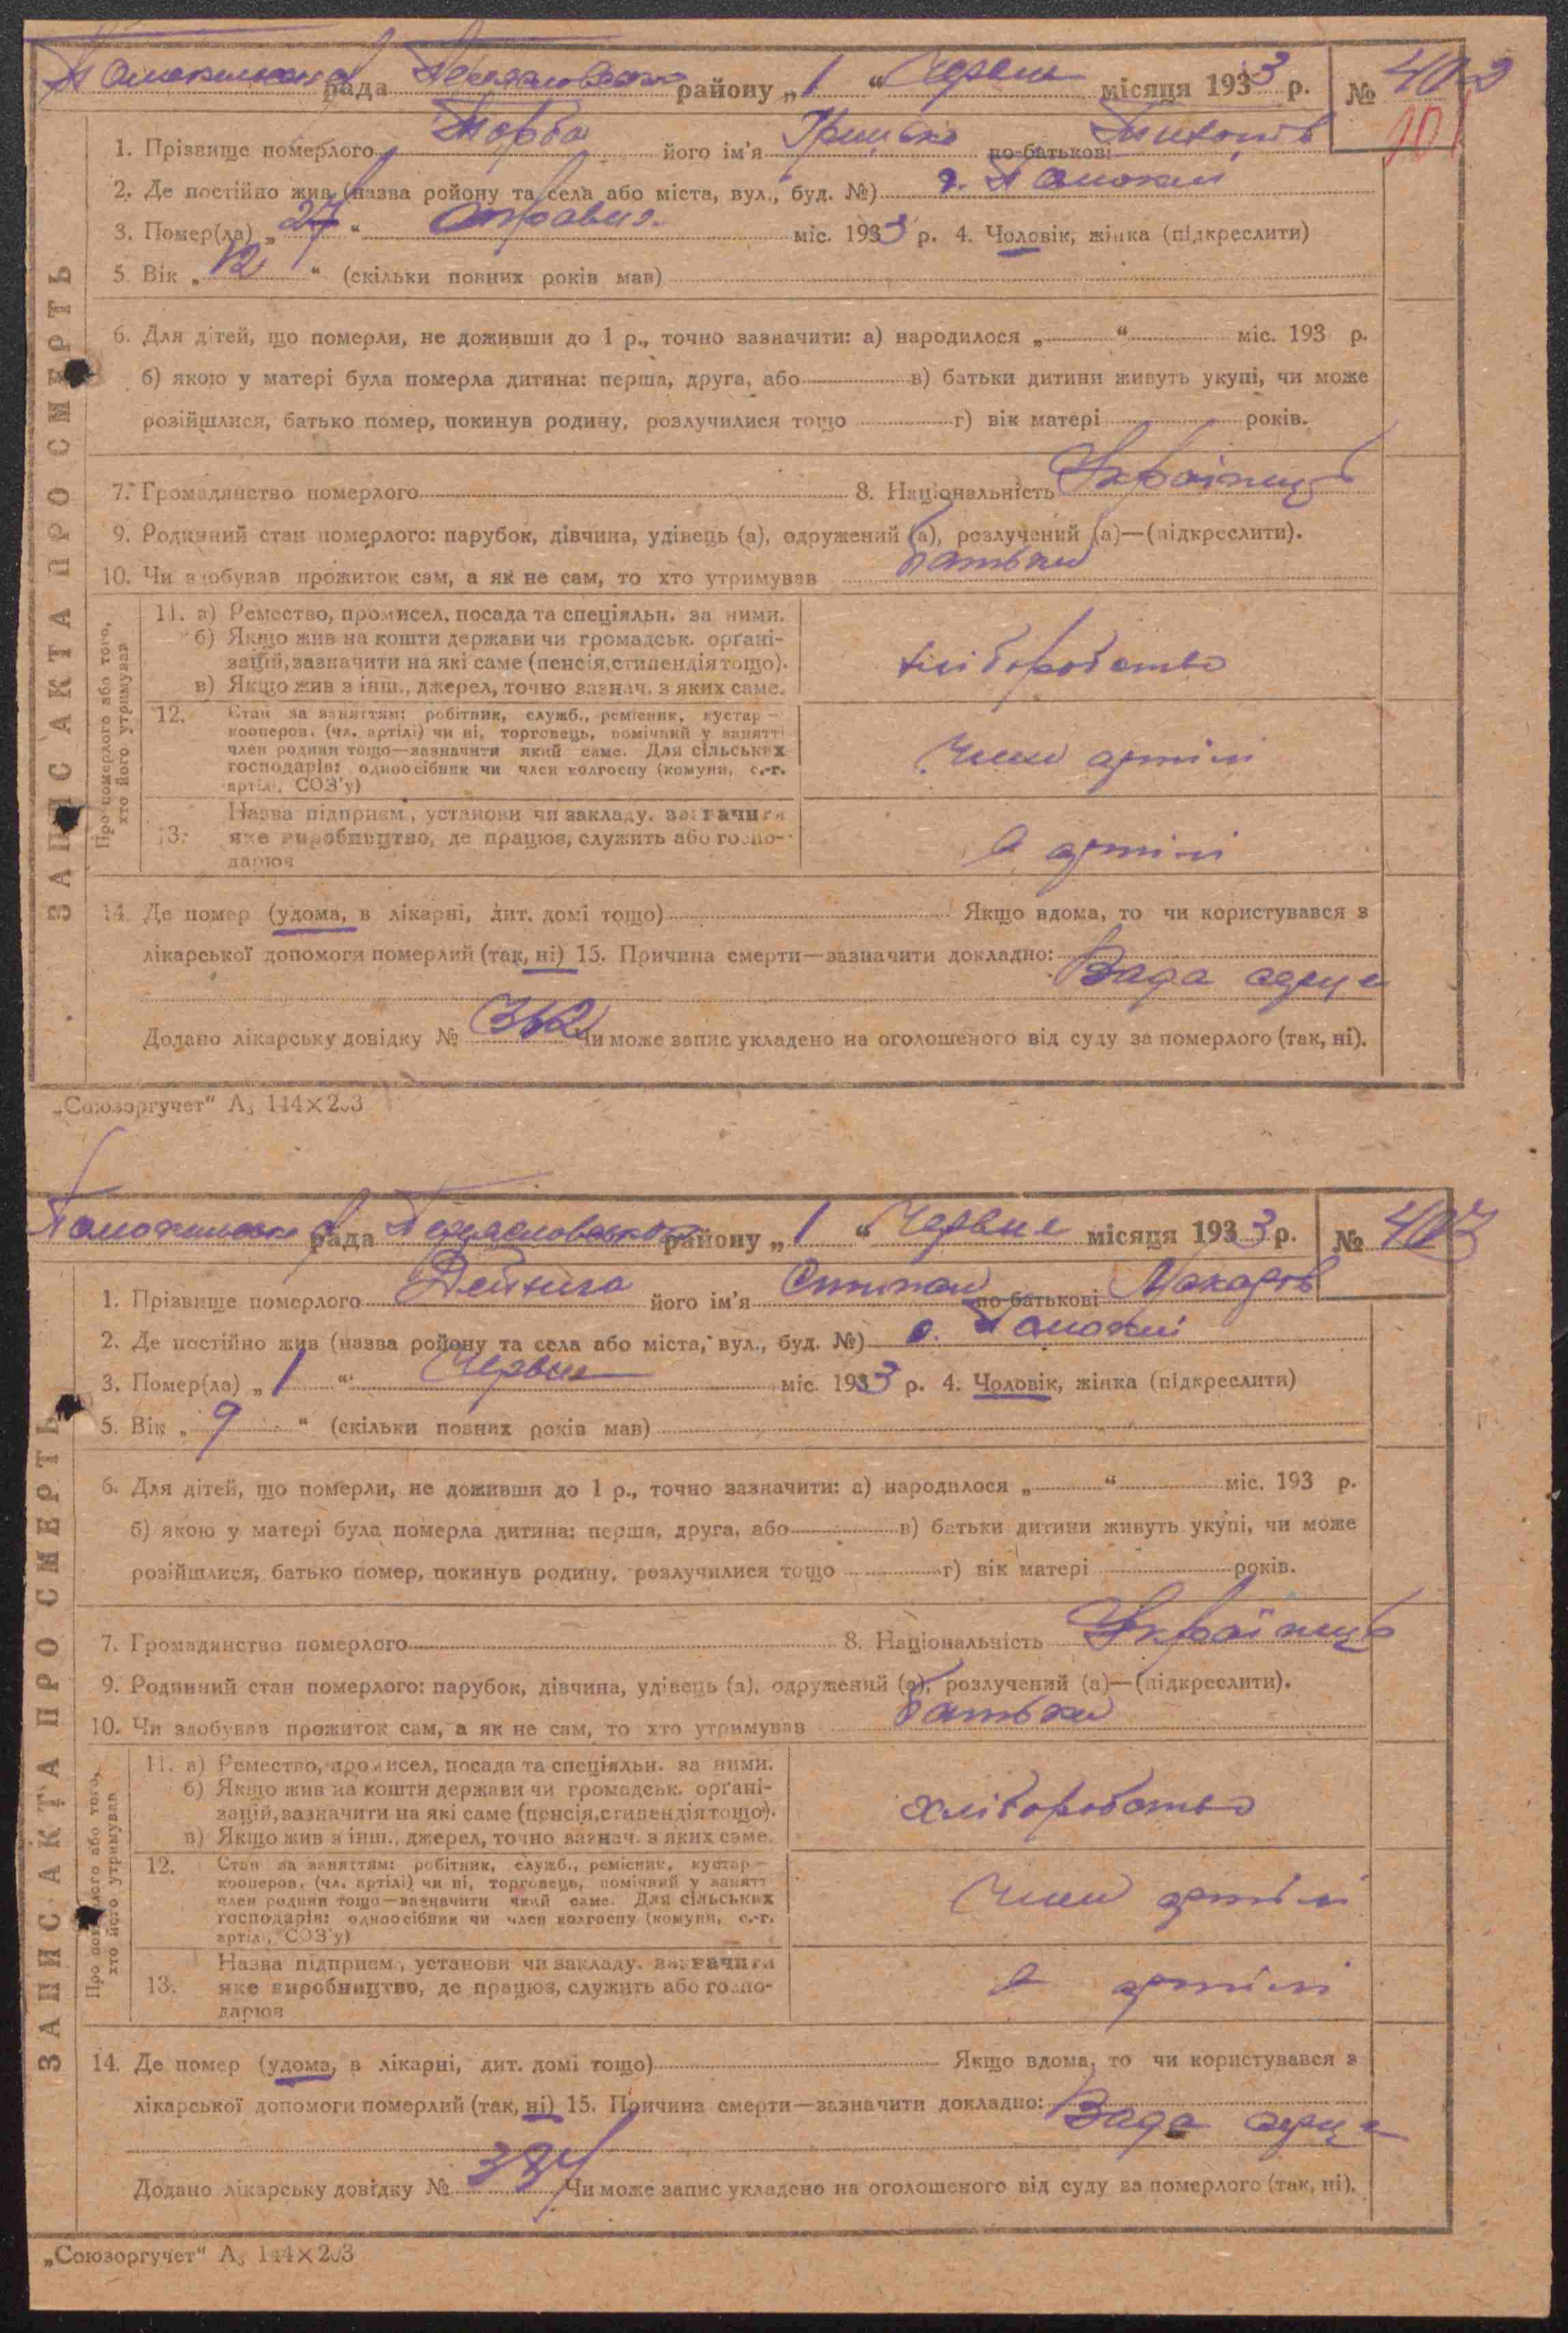 рада району „1“ Червня місяця 1933 р. № 402
101
1. Прізвище померлого Торба його ім'я Грицько по-батькові
2. Де постійно жив (назва ройону та села або міста, вул., буд. №) с.
3. Помер(ла) „27“ травня міс. 1933 р. 4. Чоловік, жінка (підкреслити)
5. Вік „12“ (скільки повних років мав)
6. Для дітей, що померли, не доживши до 1 р., точно зазначити: а) народилося „ “ міс. 193 р.
б) якою у матері була померла дитина: перша, друга, або в) батьки дитини живуть укупі, чи може
розійшлися, батько помер, покинув родину, розлучилися тощо г) вік матері років.
7. Громадянство померлого 8. Національність Українець
9. Родинний стан померлого: парубок, дівчина, удівець (а), одружений (а), розлучений (а)—(підкреслити).
10. Чи здобував прожиток сам, а як не сам, то хто утримував батьки
Про померлого або того, хто його утримував
11. а) Ремество, промисел, посада та спеціяльн. за ними.
б) Якщо жив на кошти держави чи громадськ. орґані-
зацій, зазначити на які саме (пенсія, стипендія тощо).
в) Якщо жив з інш., джерел, точно зазнач. з яких саме.
хліборобство
12. Стан за заняттям: робітник, служб., ремісник, кустар—
кооперов. (чл. артілі) чи ні, торговець, помічний у занятті
член родини тощо—зазначити який саме. Для сільських
господарів: одноосібник чи член колгоспу (комуни, с.-г.
артілі, СОЗ'у)
член артілі
13. Назва підприєм., установи чи закладу, зазначити
яке виробництво, де працює, служить або госпо-
дарює
в артілі
14. Де помер (удома, в лікарні, дит. домі тощо) Якщо вдома, то чи користувався з
лікарської допомоги померлий (так, ні) 15. Причина смерти—зазначити докладно: Вада серця
Додано лікарську довідку № Чи може запис укладено на оголошеного від суду за померлого (так, ні).
ЗАПИС АКТА ПРО СМЕРТЬ
„Союзоргучет“ А5 144×203
рада району „1“ Червня місяця 1933 р. № 403
1. Прізвище померлого його ім'я Степан по-батькові Макарів
2. Де постійно жив (назва ройону та села або міста, вул., буд. №) с.
3. Помер(ла) „1“ Червня міс. 1933 р. 4. Чоловік, жінка (підкреслити)
5. Вік „9“ (скільки повних років мав)
6. Для дітей, що померли, не доживши до 1 р., точно зазначити: а) народилося „ “ міс. 193 р.
б) якою у матері була померла дитина: перша, друга, або в) батьки дитини живуть укупі, чи може
розійшлися, батько помер, покинув родину, розлучилися тощо г) вік матері років.
7. Громадянство померлого 8. Національність Українець
9. Родинний стан померлого: парубок, дівчина, удівець (а), одружений (а), розлучений (а)—(підкреслити).
10. Чи здобував прожиток сам, а як не сам, то хто утримував батьки
Про померлого або того, хто його утримував
11. а) Ремество, промисел, посада та спеціяльн. за ними.
б) Якщо жив на кошти держави чи громадськ. орґані-
зацій, зазначити на які саме (пенсія, стипендія тощо).
в) Якщо жив з інш., джерел, точно зазнач. з яких саме.
хліборобство
12. Стан за заняттям: робітник, служб., ремісник, кустар—
кооперов. (чл. артілі) чи ні, торговець, помічний у занятті
член родини тощо—зазначити який саме. Для сільських
господарів: одноосібник чи член колгоспу (комуни, с.-г.
артілі, СОЗ'у)
член артілі
13. Назва підприєм., установи чи закладу, зазначити
яке виробництво, де працює, служить або госпо-
дарює
в артілі
14. Де помер (удома, в лікарні, дит. домі тощо) Якщо вдома, то чи користувався з
лікарської допомоги померлий (так, ні) 15. Причина смерти—зазначити докладно: Вада серця
Додано лікарську довідку № Чи може запис укладено на оголошеного від суду за померлого (так, ні).
ЗАПИС АКТА ПРО СМЕРТЬ
„Союзоргучет“ А5 144×203